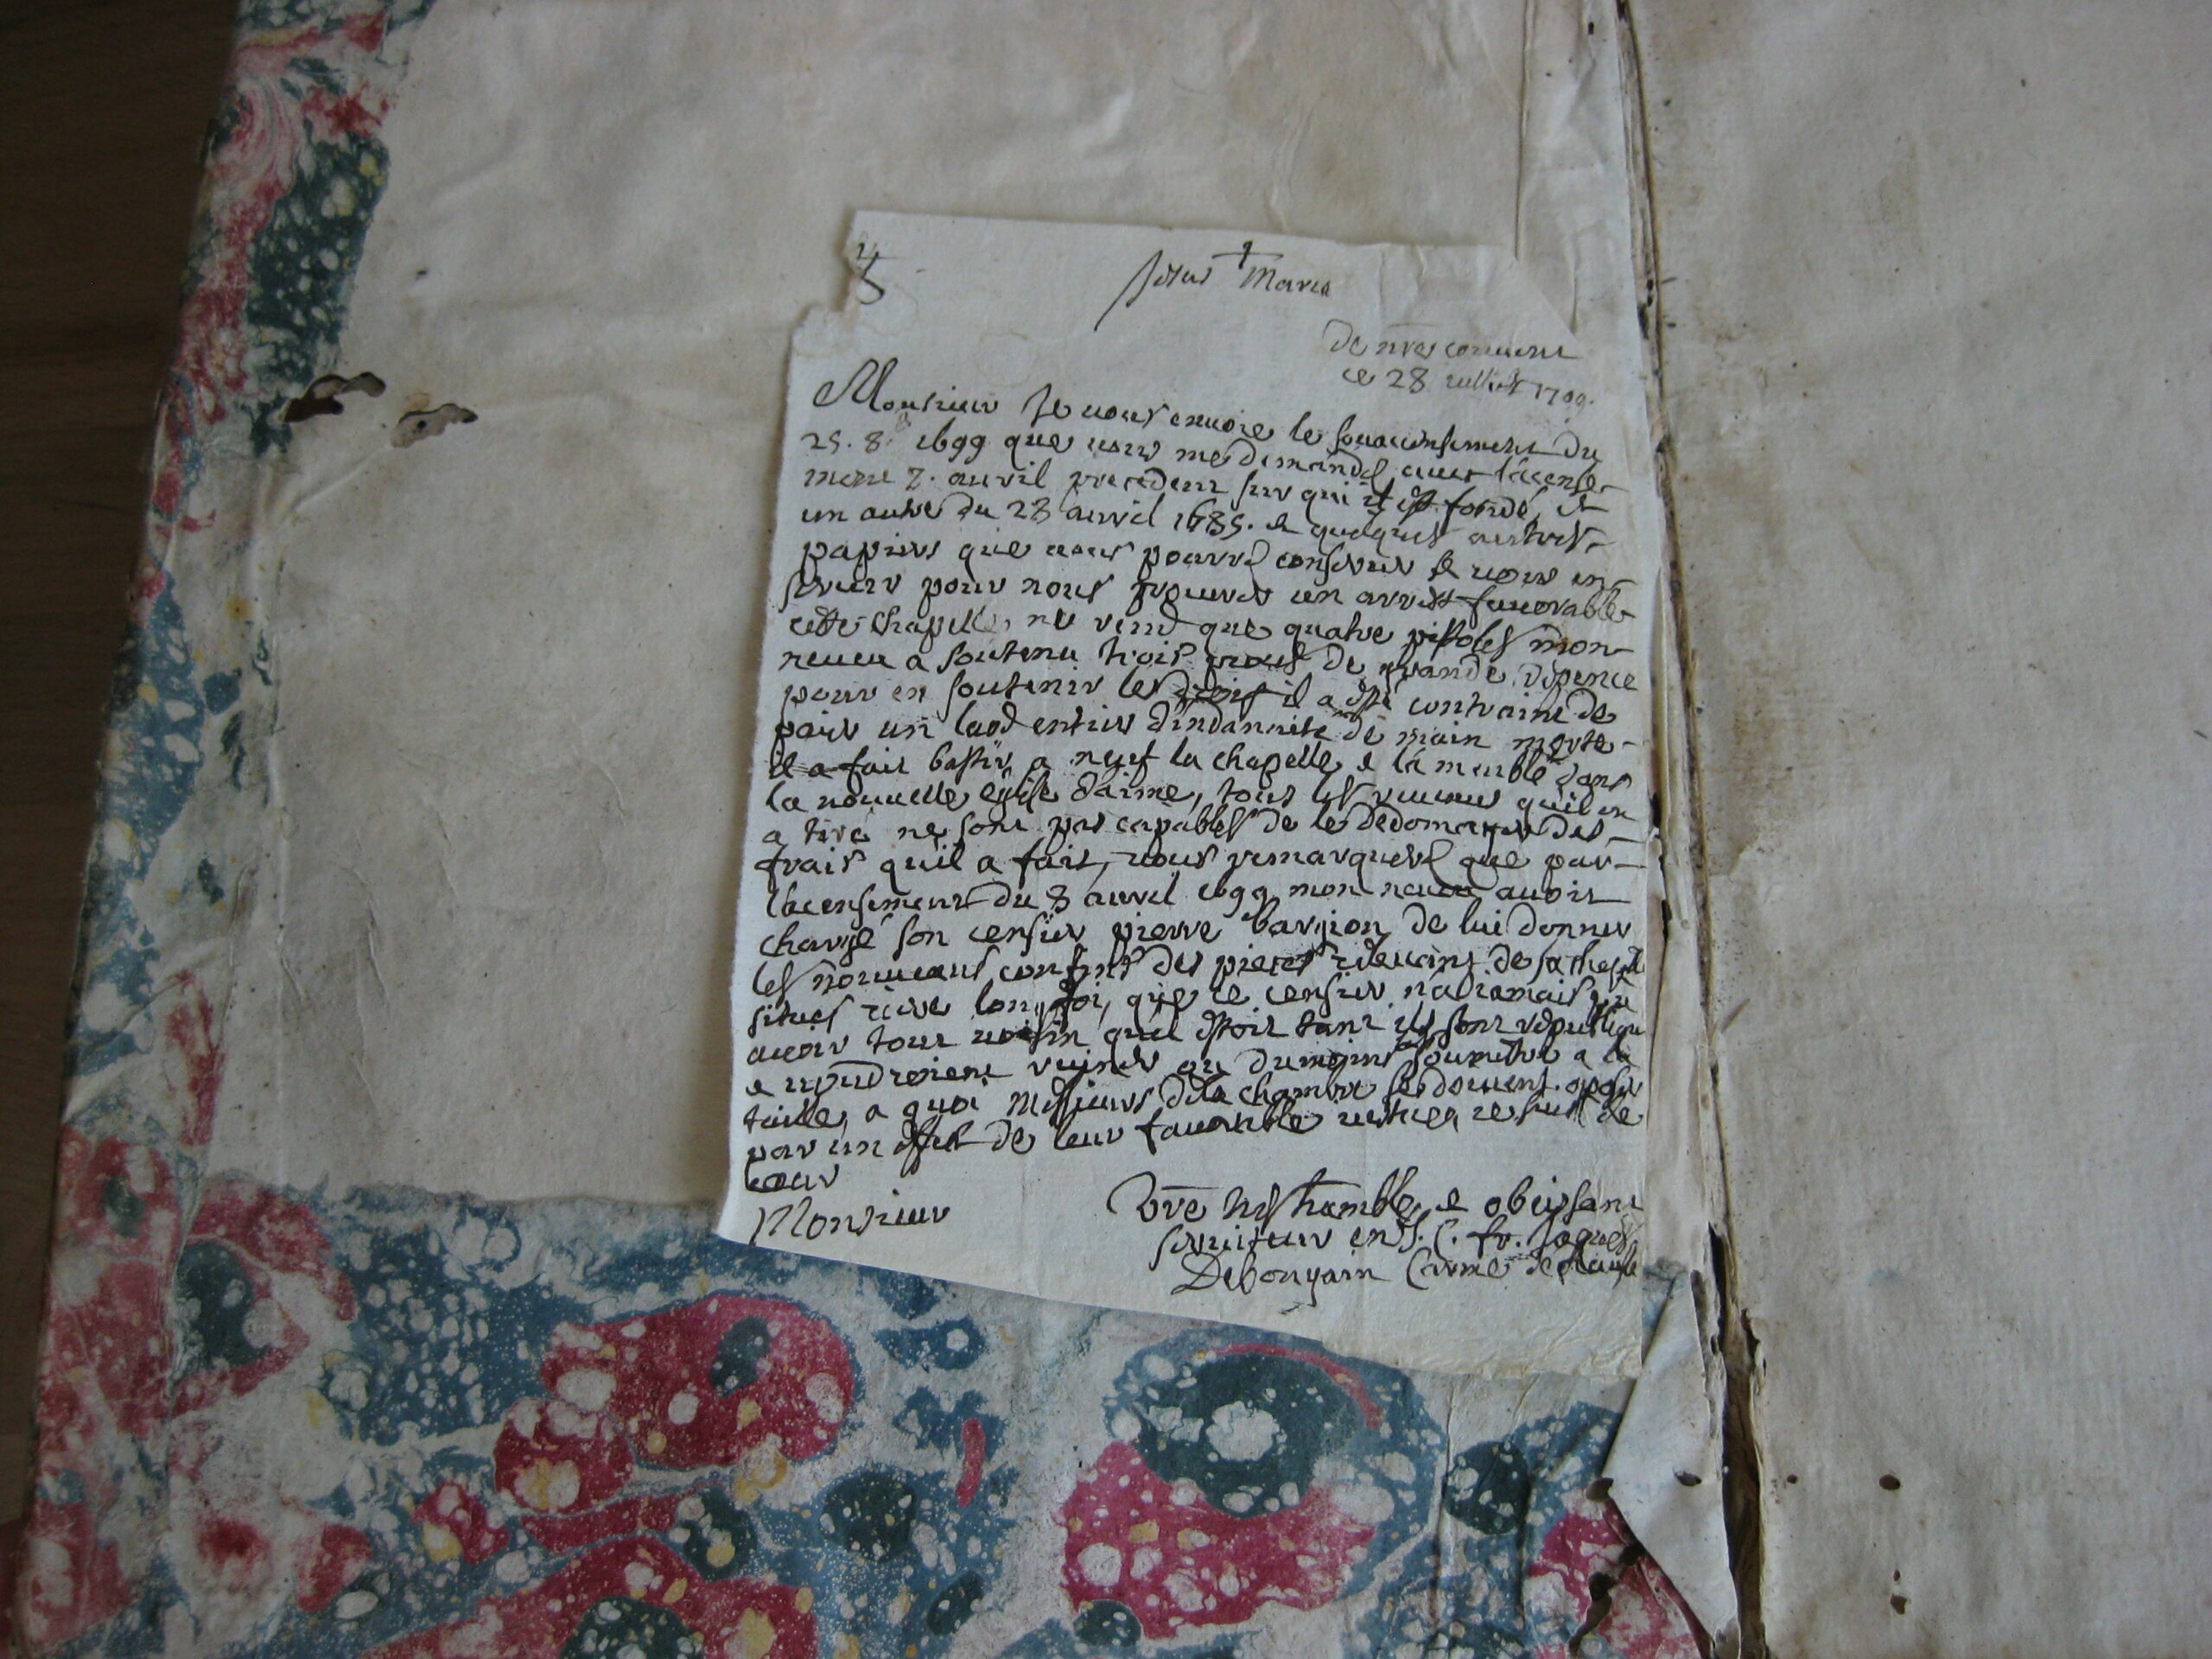 Jesus † Maria
De nre couuent
ce 28 1709.
Monsieur Je uous enuoie le du
25. 8. 1699 que uous me demandes auec lacense-
ment 7. auril precedent sur qui il est fondé, et
un autre du 28 auril 1685. et quelques autres
papiers que uous pourres conserver et uous en
seruir pour nous procurer un arrest fauorable
cette chapelle, ne rend que quatre pistoles mon
neueu a soutenu trois de grande dépence
pour en soutenir les droits il a esté contraint de
paier un laod entier d'indannité de main morte
il a fait bastir a neuf la chapelle et la meublé dans
la nouuelle église daime, tous les reuenus quil en
a tiré ne sont pas capables de le dedomager des
frais quil a fait, uous remarqueres que par
lacensement du 8 auril 1699 mon neueu auoit
chargé son censier pierre bargion de lui donner
les nouueaus confins des pieces de sa chapelle
situés riere lon foi, que ce censier na iamais pu
auoir tout uoisin quil estoit tant ils sont
e ruiner ou du moins soumetre a la
taille, a quoi messieurs de la chambre se doiuent oposer
par un effet de leur fauorable iustice, ie suis de
coeur
Monsieur
Vre tres humble et obeissant
seruiteur en J. C. fr. Jaques
Carme